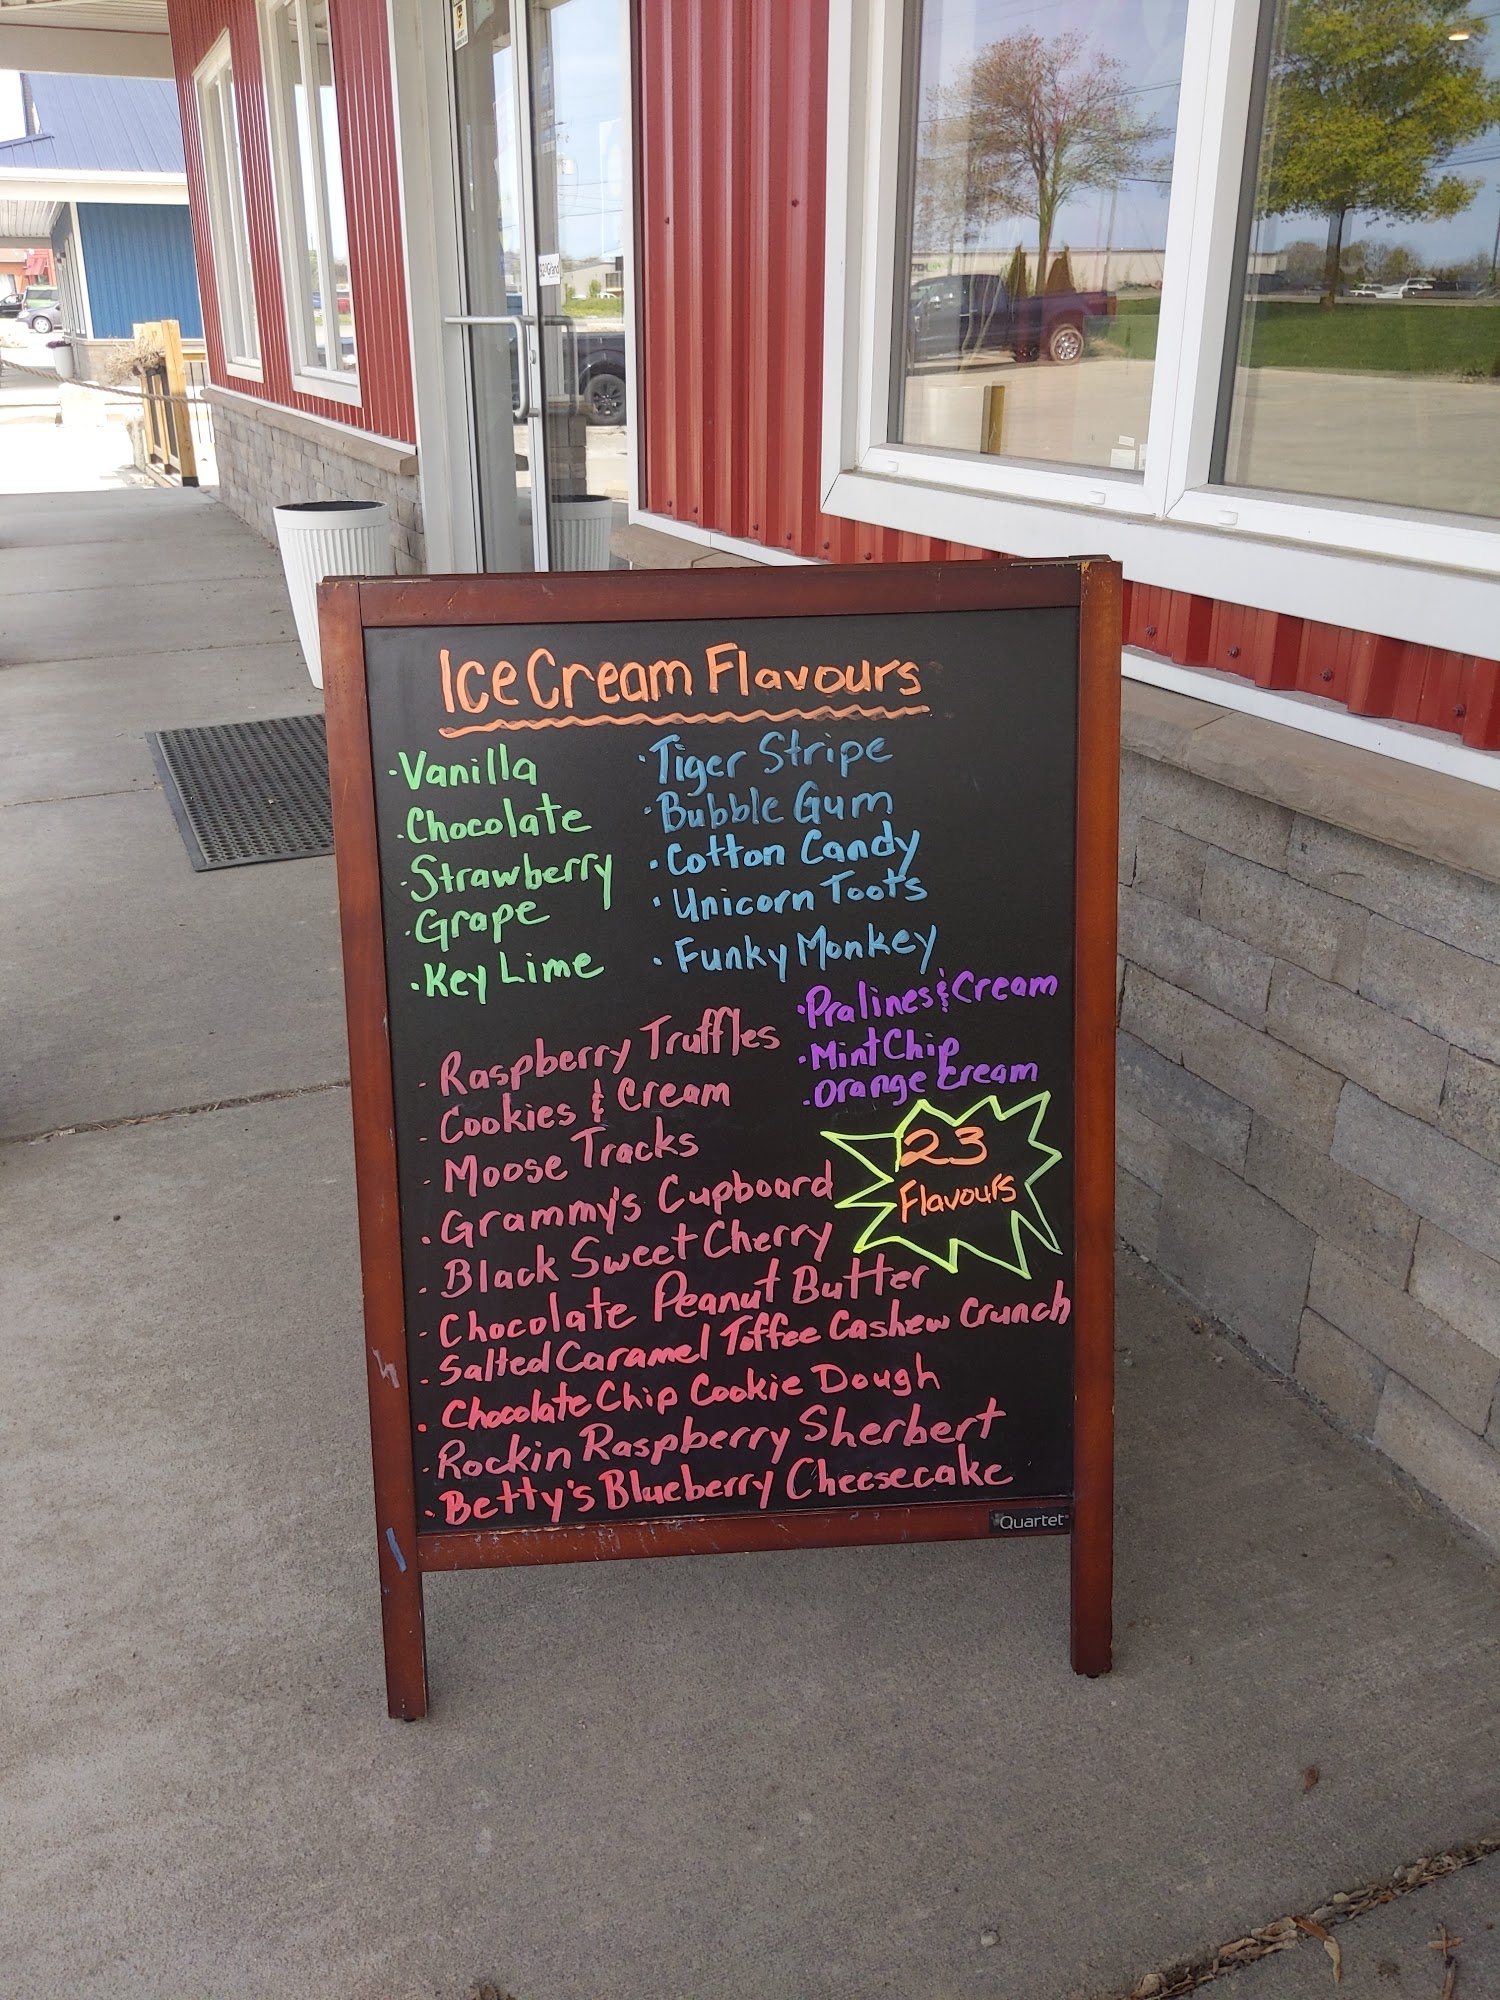 Ice Cream Flavours
·Vanilla
·Chocolate
·Strawberry
·Grape
·Key Lime
·Tiger Stripe
·Bubble Gum
·Cotton Candy
·Unicorn Toots
·Funky Monkey
·Pralines & Cream
·Mint Chip
·Orange Cream
·Raspberry Truffles
·Cookies & Cream
·Moose Tracks
·Grammy's Cupboard
·Black Sweet Cherry
·Chocolate Peanut Butter
·Salted Caramel Toffee Cashew Crunch
·Chocolate Chip Cookie Dough
·Rockin Raspberry Sherbert
·Betty's Blueberry Cheesecake
23
Flavours
Quartet